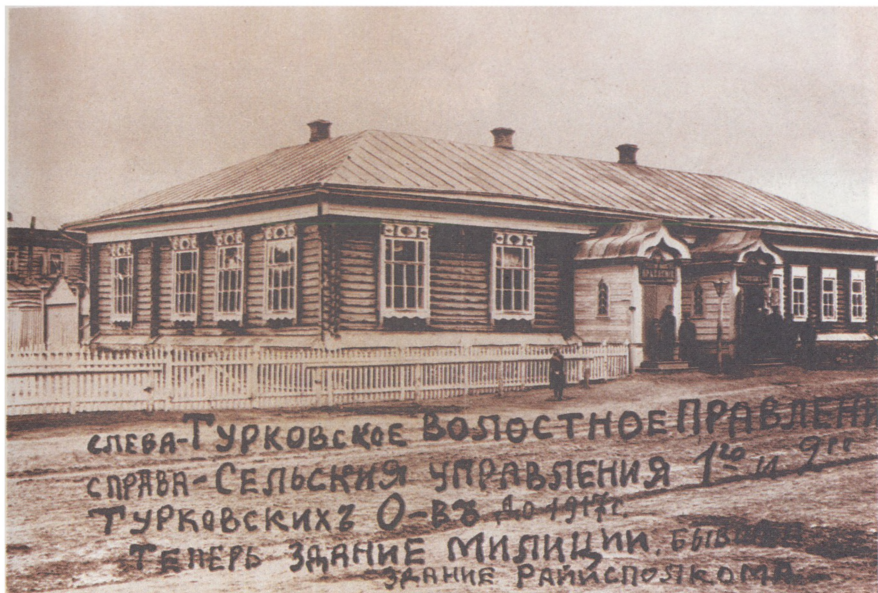 ПРАВЛЕНИЕ
СЛЕВА-ТУРКОВСКОЕ ВОЛОСТНОЕ ПРАВЛЕНИ
СПРАВА-СЕЛЬСКИЯ УПРАВЛЕНИЯ 1го И 2го
ТУРКОВСКИХЪ О-ВЪ ДО 1917г.
ТЕПЕРЬ ЗДАНИЕ МИЛИЦИИ, БЫВШЕЕ
ЗДАНИЕ РАЙИСПОЛКОМА